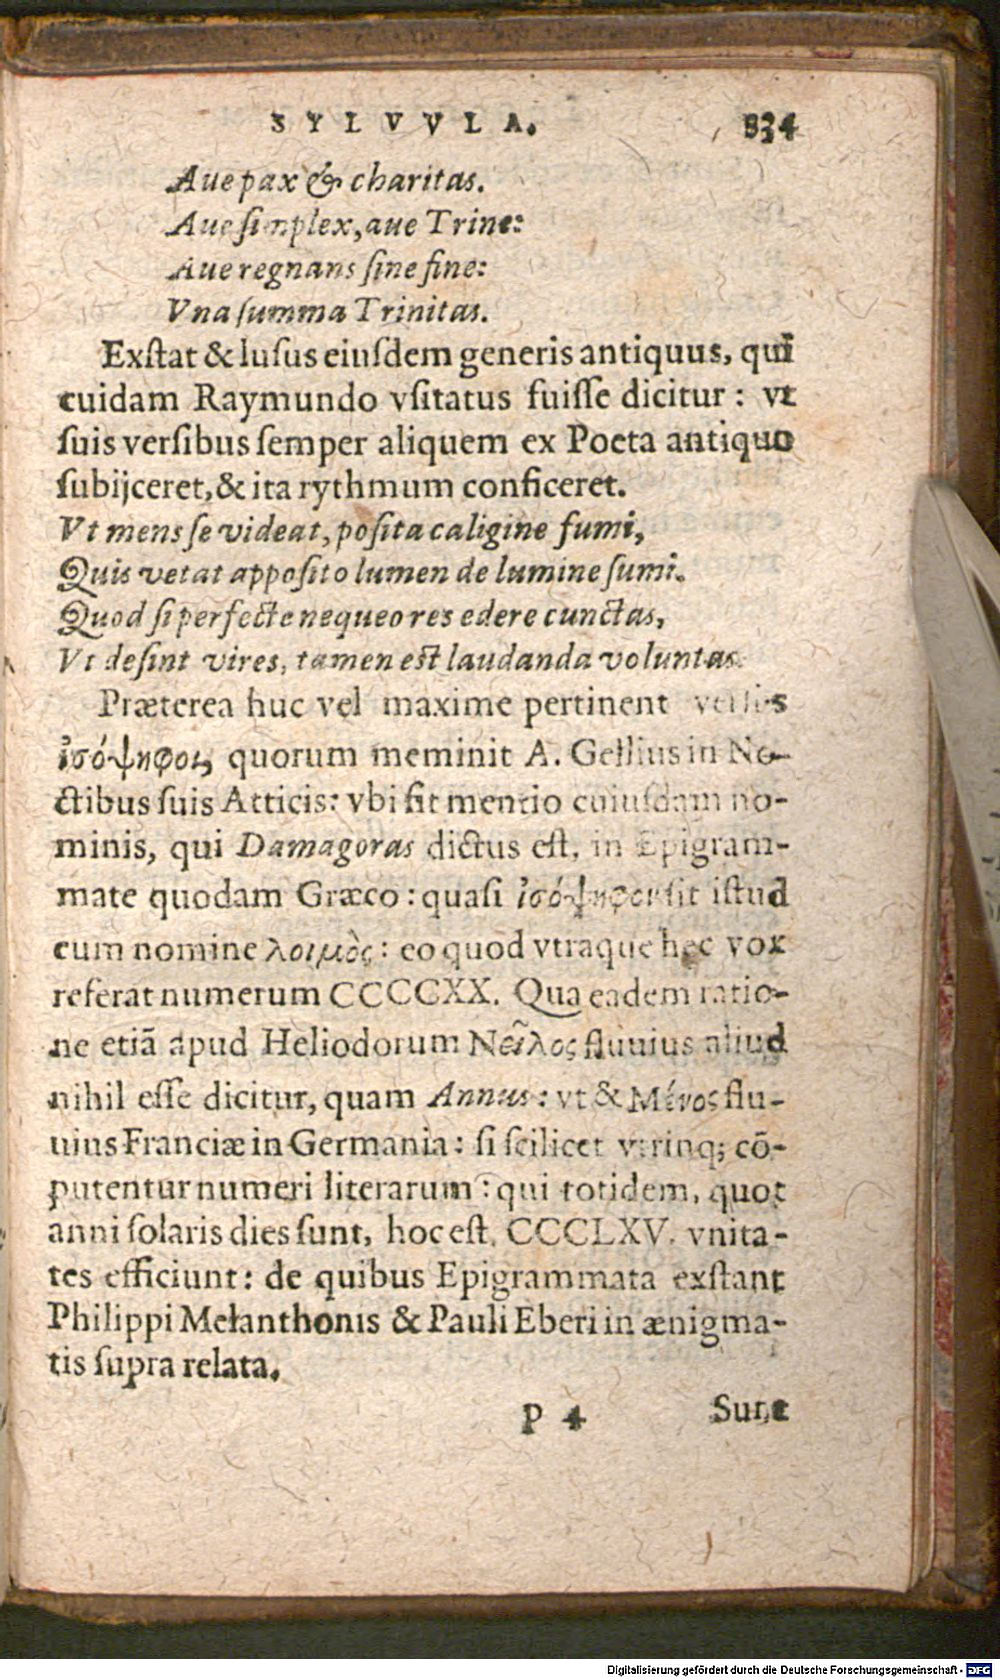 SYLVVLA. 834
Aue pax & charitas.
Aue simplex, aue Trine:
Aue regnans sine fine:
Vna summa Trinitas.
Exstat & lusus eiusdem generis antiquus, qui
cuidam Raymundo vsitatus fuisse dicitur: vt
suis versibus semper aliquem ex Poeta antiquo
subijceret, & ita rythmum conficeret.
Vt mens se videat, posita caligine fumi,
Quis vetat apposito lumen de lumine sumi.
Quod si perfecte nequeo res edere cunctas,
Vt desint vires, tamen est laudanda voluntas.
Præterea huc vel maxime pertinent versus
ἰσόψηφοι, quorum meminit A. Gellius in No-
ctibus suis Atticis: vbi fit mentio cuiusdam no-
minis, qui Damagoras dictus est, in Epigram-
mate quodam Græco: quasi ἰσόψηφον sit istud
cum nomine λοιμὸς: eo quod vtraque hęc vox
referat numerum CCCCXX. Qua eadem ratio-
ne etiã apud Heliodorum Νεῖλος fluuius aliud
nihil esse dicitur, quam Annus: vt & Μένος flu-
uius Franciæ in Germania: si scilicet vtrinq; cõ-
putentur numeri literarum: qui totidem, quot
anni solaris dies sunt, hoc est, CCCLXV. vnita-
tes efficiunt: de quibus Epigrammata exstant
Philippi Melanthonis & Pauli Eberi in ænigma-
tis supra relata.
P 4 Sunt
Digitalisierung gefördert durch die Deutsche Forschungsgemeinschaft - DFG